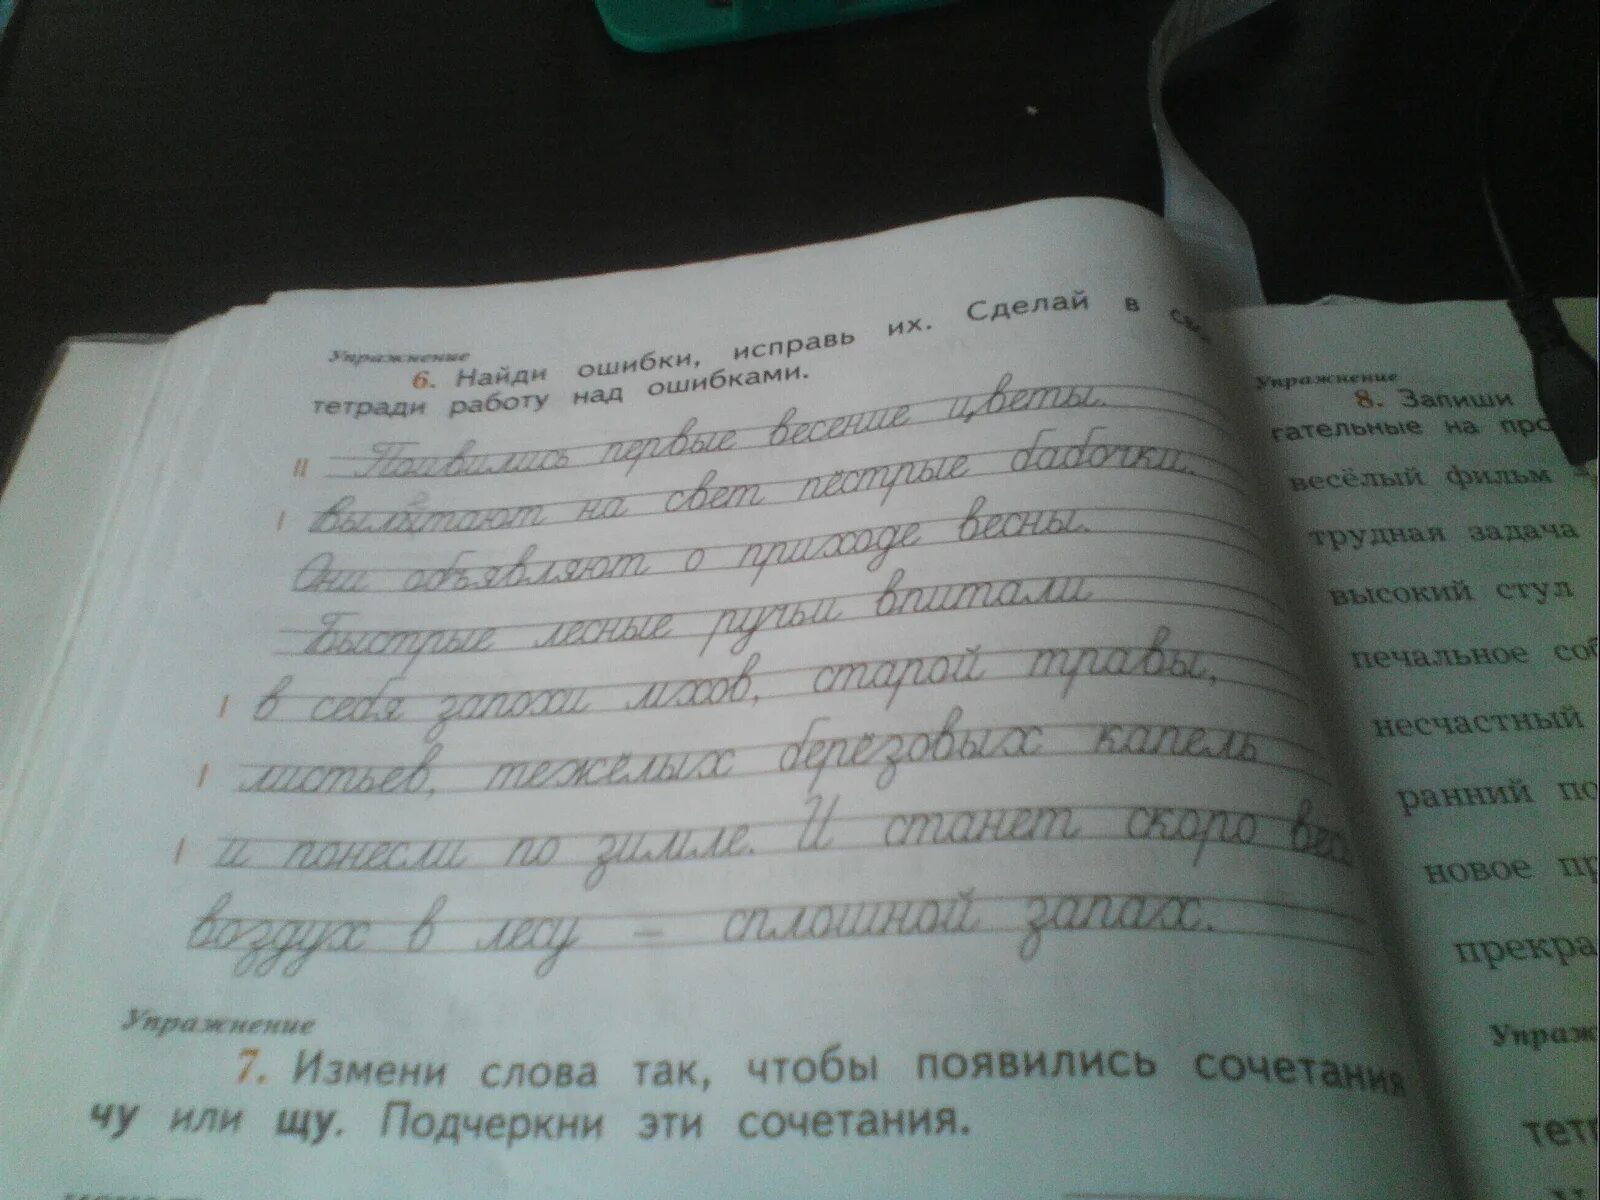 Упражнение
6. Найди ошибки, исправь их. Сделай в
тетради работу над ошибками.
II Поивились первые весение цветы.
I Вылитают на свет пёстрые бабочки.
Они объявляют о приходе весны.
Быстрые лесные ручьи впитали
I в себя запохи мхов, старой травы,
I листьев, тежёлых берёзовых капель
I и понесли по зимле. И станет скоро вес
воздух в лесу – сплошной запах.
Упражнение
7. Измени слова так, чтобы появились сочетания
чу или щу. Подчеркни эти сочетания.
Упражнение
8. Запиши
гательные на про
весёлый фильм –
трудная задача
высокий стул
печальное соб
несчастный
ранний по
новое пр
прекра
Упраж
тет